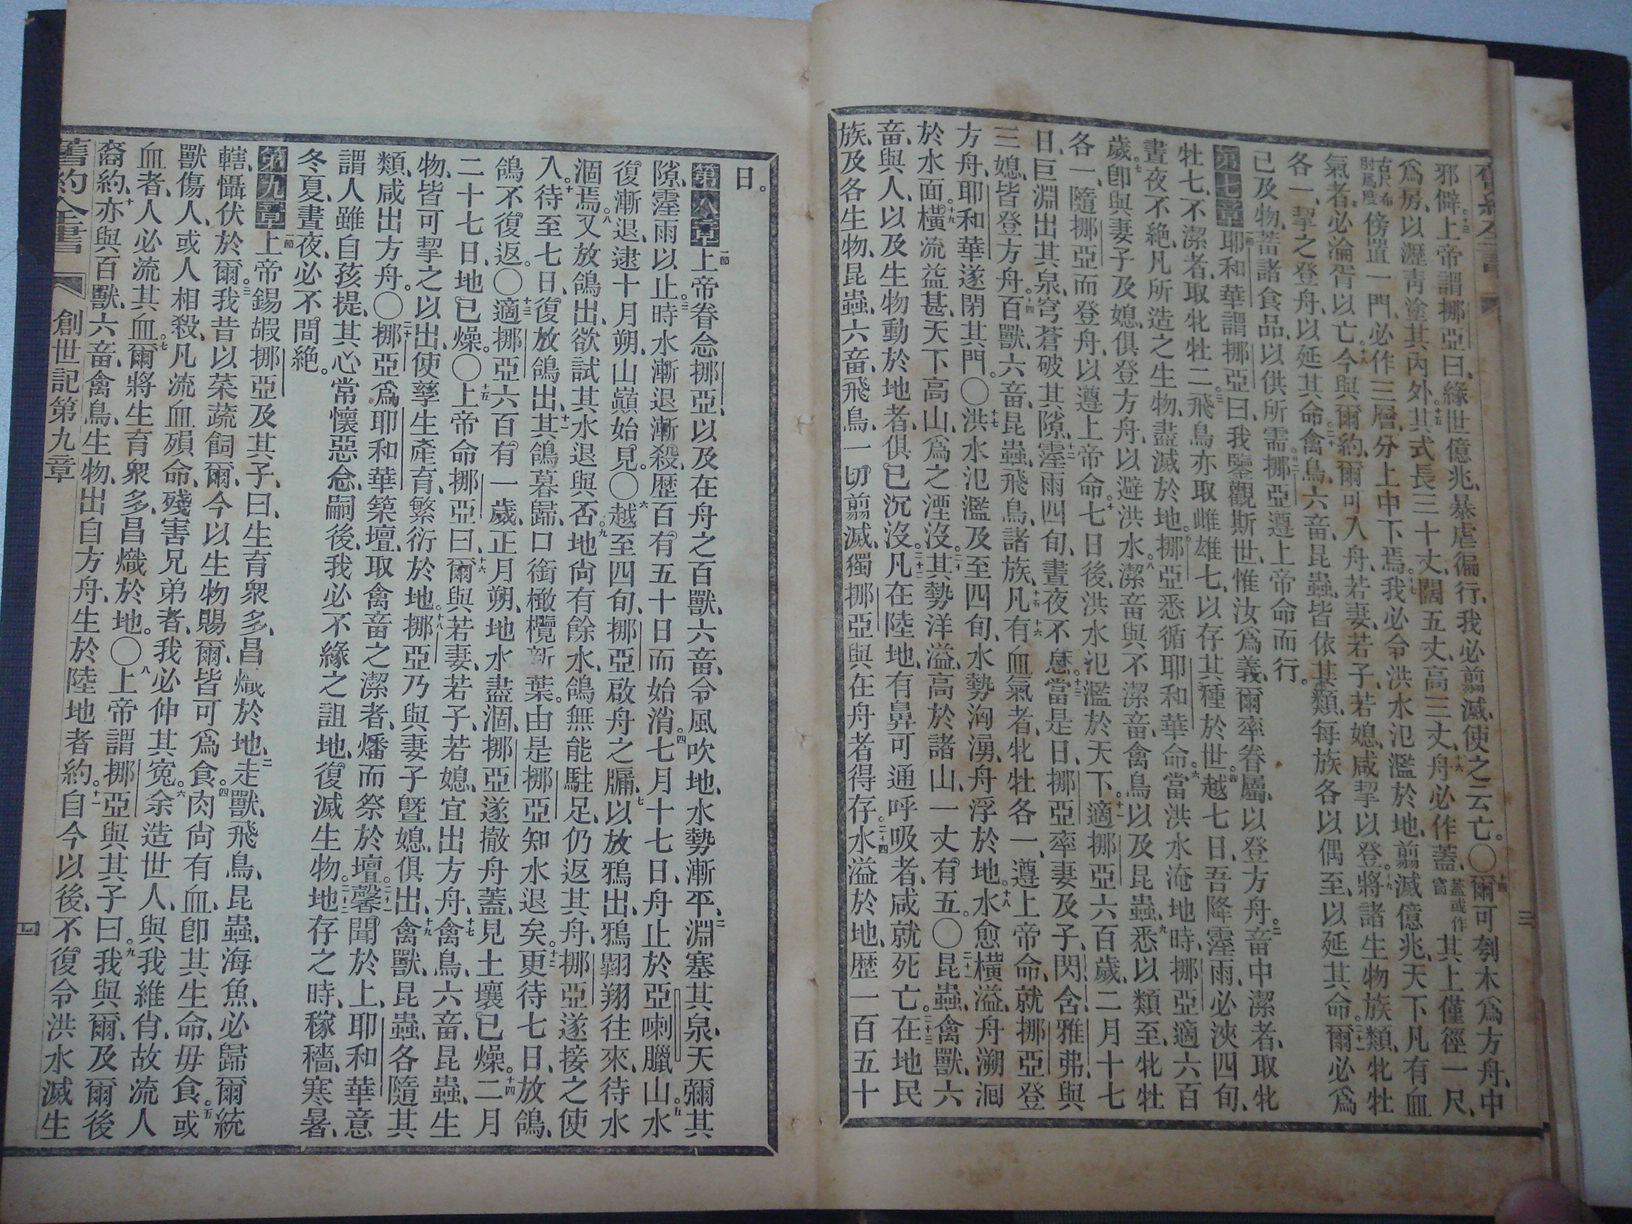 舊約全書
三
邪僻、十三上帝謂挪亞曰、緣世億兆、暴虐徧行、我必翦滅、使之云亡。〇十四爾可刳木爲方舟、中
爲房、以瀝靑塗其內外、十五其式長三十丈、闊五丈、高三丈、十六舟必作蓋、蓋或作窗其上僅徑一尺、
古尺布肘爲度傍置一門、必作三層、分上中下焉、十七我必令洪水氾濫於地、翦滅億兆、天下凡有血
氣者、必淪胥以亡、十八今與爾約、爾可入舟、若妻、若子、若媳、咸挈以登、十九將諸生物族類、牝牡
各一、挈之登舟、以延其命、二十禽鳥、六畜、昆蟲、皆依其類、每族各以偶至、以延其命、二十一爾必爲
已及物、蓄諸食品、以供所需、二十二挪亞遵上帝命而行。
第七章一節耶和華謂挪亞曰、我鑒觀斯世、惟汝爲義、爾率眷屬、以登方舟、二畜中潔者、取牝
牡七、不潔者、取牝牡二、三飛鳥亦取雌雄七、以存其種於世、四越七日、吾降霪雨、必浹四旬、
晝夜不絕、凡所造之生物、盡滅於地、五挪亞悉循耶和華命、六當洪水淹地時、挪亞適六百
歲、七卽與妻子及媳、俱登方舟、以避洪水、八潔畜與不潔畜、禽鳥以及昆蟲、九悉以類至、牝牡
各一、隨挪亞而登舟、以遵上帝命、十七日後、洪水氾濫於天下、十一適挪亞六百歲、二月十七
日、巨淵出其泉、穹蒼破其隙、十二霪雨四旬、晝夜不息、十三當是日、挪亞率妻及子、閃、含、雅弗、與
三媳、皆登方舟、十四百獸、六畜、昆蟲、飛鳥諸族、十五凡有血氣者、十六牝牡各一、遵上帝命、就挪亞登
方舟、耶和華遂閉其門。〇十七洪水氾濫、及至四旬、水勢洶湧、舟浮於地、十八水愈橫溢、舟溯洄
於水面、十九橫流益甚、天下高山、爲之湮沒、二十其勢洋溢、高於諸山、一丈有五。〇二十一昆蟲、禽獸、六
畜、與人、以及生物動於地者、俱已沉沒、二十二凡在陸地、有鼻可通呼吸者、咸就死亡、二十三在地民
族、及各生物、昆蟲、六畜、飛鳥、一切翦滅、獨挪亞與在舟者得存、二十四水溢於地、歷一百五十
日。
第八章一節上帝眷念挪亞、以及在舟之百獸六畜、令風吹地、水勢漸平、二淵塞其泉、天彌其
隙、霪雨以止、三時水漸退漸殺、歷百有五十日而始消、四七月十七日、舟止於亞喇臘山、五水
復漸退、逮十月朔、山巔始見。〇六越至四旬、挪亞啟舟之牖、七以放鴉出、鴉翺翔往來、待水
涸焉、八又放鴿出、欲試其水退與否、九地尙有餘水、鴿無能駐足、仍返其舟、挪亞遂接之使
入、十待至七日、復放鴿出、十一其鴿暮歸、口銜橄欖新葉、由是挪亞知水退矣、十二更待七日、放鴿、
鴿不復返。〇十三適挪亞六百有一歲、正月朔、地水盡涸、挪亞遂撤舟蓋、見土壤已燥、十四二月
二十七日、地已燥。〇十五上帝命挪亞曰、十六爾與若妻、若子、若媳、宜出方舟、十七禽鳥、六畜、昆蟲、生
物、皆可挈之以出、使孳生產育、繁衍於地、十八挪亞乃與妻子曁媳俱出、十九禽獸昆蟲、各隨其
類、咸出方舟。〇二十挪亞爲耶和華築壇、取禽畜之潔者、燔而祭於壇、二十一馨聞於上、耶和華意
謂人雖自孩提、其心常懷惡念、嗣後我必不緣之詛地、復滅生物、二十二地存之時、稼穡、寒暑、
冬夏、晝夜、必不間絕。
第九章一節上帝錫嘏挪亞、及其子曰、生育衆多、昌熾於地、二走獸飛鳥、昆蟲海魚、必歸爾統
轄、懾伏於爾、三我昔以菜蔬飼爾、今以生物賜爾、皆可爲食、四肉尙有血、卽其生命、毋食、五或
獸傷人、或人相殺、凡流血殞命、殘害兄弟者、我必伸其冤、六余造世人、與我維肖、故流人
血者、人必流其血、七爾將生育衆多、昌熾於地。〇八上帝謂挪亞與其子曰、九我與爾、及爾後
裔約、十亦與百獸六畜、禽鳥生物、出自方舟、生於陸地者約、十一自今以後、不復令洪水滅生
舊約全書
創世記第九章
四